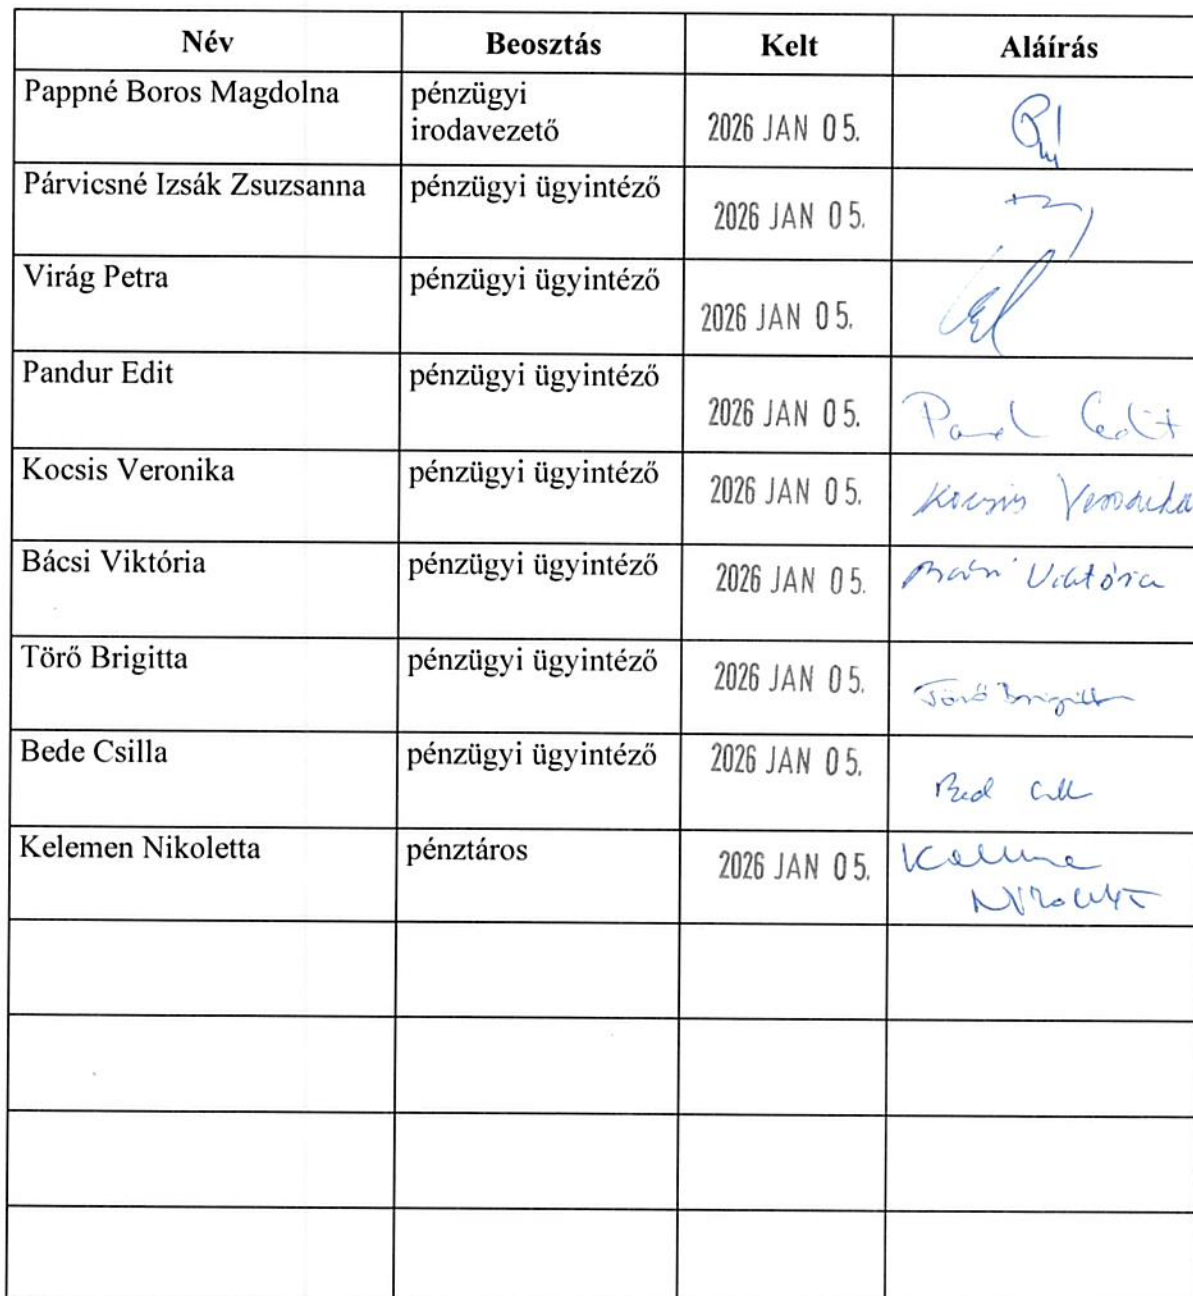 Név Beosztás Kelt Aláírás
Pappné Boros Magdolna pénzügyi
irodavezető 2026 JAN 05.
Párvicsné Izsák Zsuzsanna pénzügyi ügyintéző 2026 JAN 05.
Virág Petra pénzügyi ügyintéző 2026 JAN 05.
Pandur Edit pénzügyi ügyintéző 2026 JAN 05. Edit
Kocsis Veronika pénzügyi ügyintéző 2026 JAN 05. Kocsis Veronika
Bácsi Viktória pénzügyi ügyintéző 2026 JAN 05. Viktória
Törő Brigitta pénzügyi ügyintéző 2026 JAN 05. Törő Brigitta
Bede Csilla pénzügyi ügyintéző 2026 JAN 05.
Kelemen Nikoletta pénztáros 2026 JAN 05.